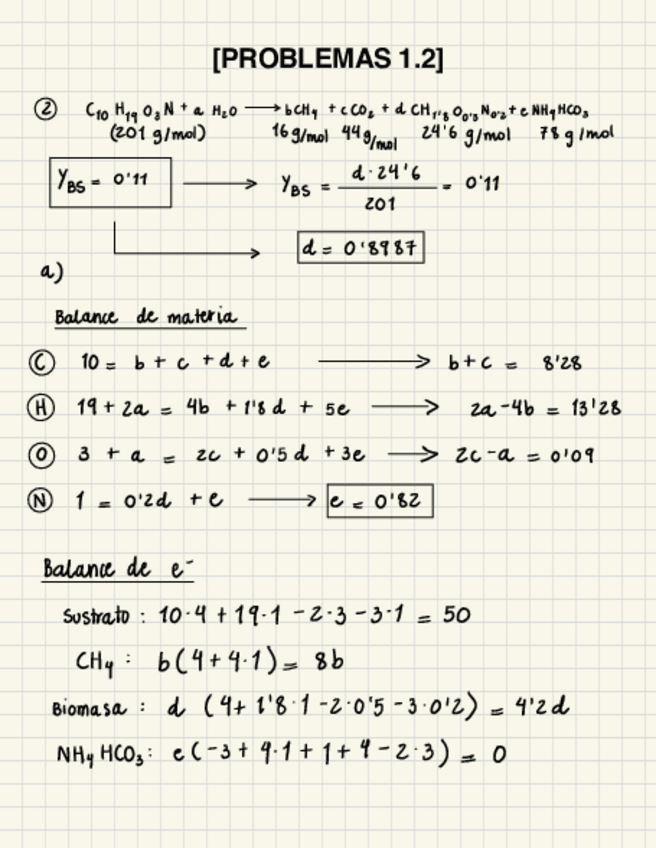 [PROBLEMAS 1.2]
② C₁₀ H₁₉ O₃ N + a H₂O ⟶ b CH₄ + c CO₂ + d CH₁'₈ O₀'₅ N₀'₂ + e NH₄ HCO₃
(201 g/mol) 16 g/mol 44 g/mol 24'6 g/mol 78 g/mol
Y_BS = 0'11 ⟶ Y_BS = d·24'6 / 201 = 0'11
d = 0'8987
a)
Balance de materia
Ⓒ 10 = b + c + d + e ⟶ b + c = 8'28
Ⓗ 19 + 2a = 4b + 1'8 d + 5e ⟶ 2a - 4b = 13'28
Ⓞ 3 + a = 2c + 0'5 d + 3e ⟶ 2c - a = 0'09
Ⓝ 1 = 0'2d + e ⟶ e = 0'82
Balance de e⁻
Sustrato : 10·4 + 19·1 - 2·3 - 3·1 = 50
CH₄ : b (4 + 4·1) = 8b
Biomasa : d (4 + 1'8·1 - 2·0'5 - 3·0'2) = 4'2d
NH₄ HCO₃ : e (-3 + 4·1 + 1 + 4 - 2·3) = 0